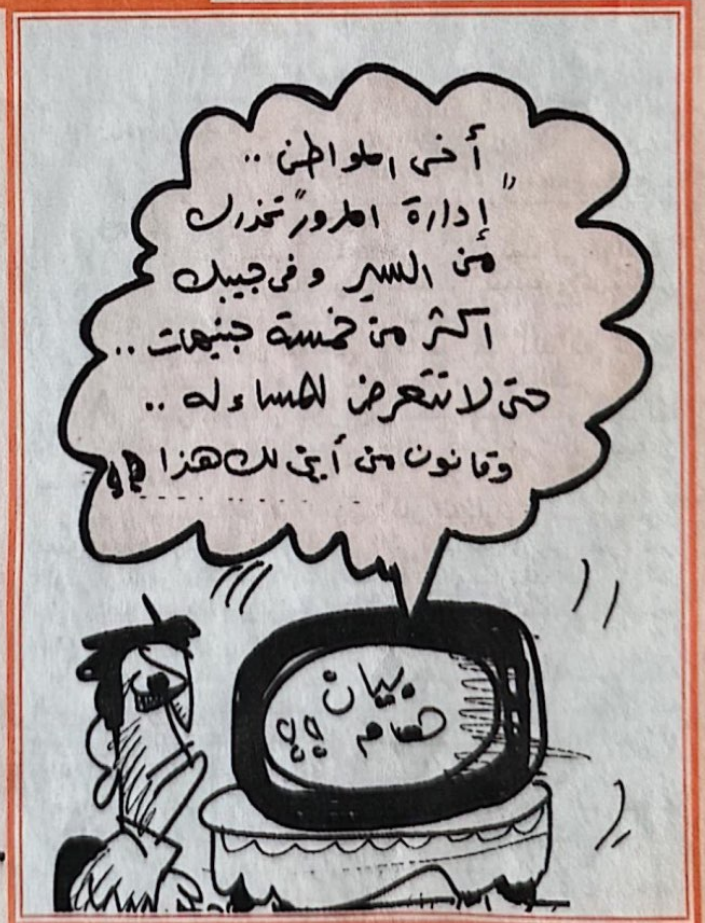 أخى المواطن ..
"إدارة المرور" تحذرك
من السير وفى جيبك
أكثر من خمسة جنيهات ..
حتى لا تتعرض للمساءله ..
وقانون من أين لك هذا !!
بيان
هام !!